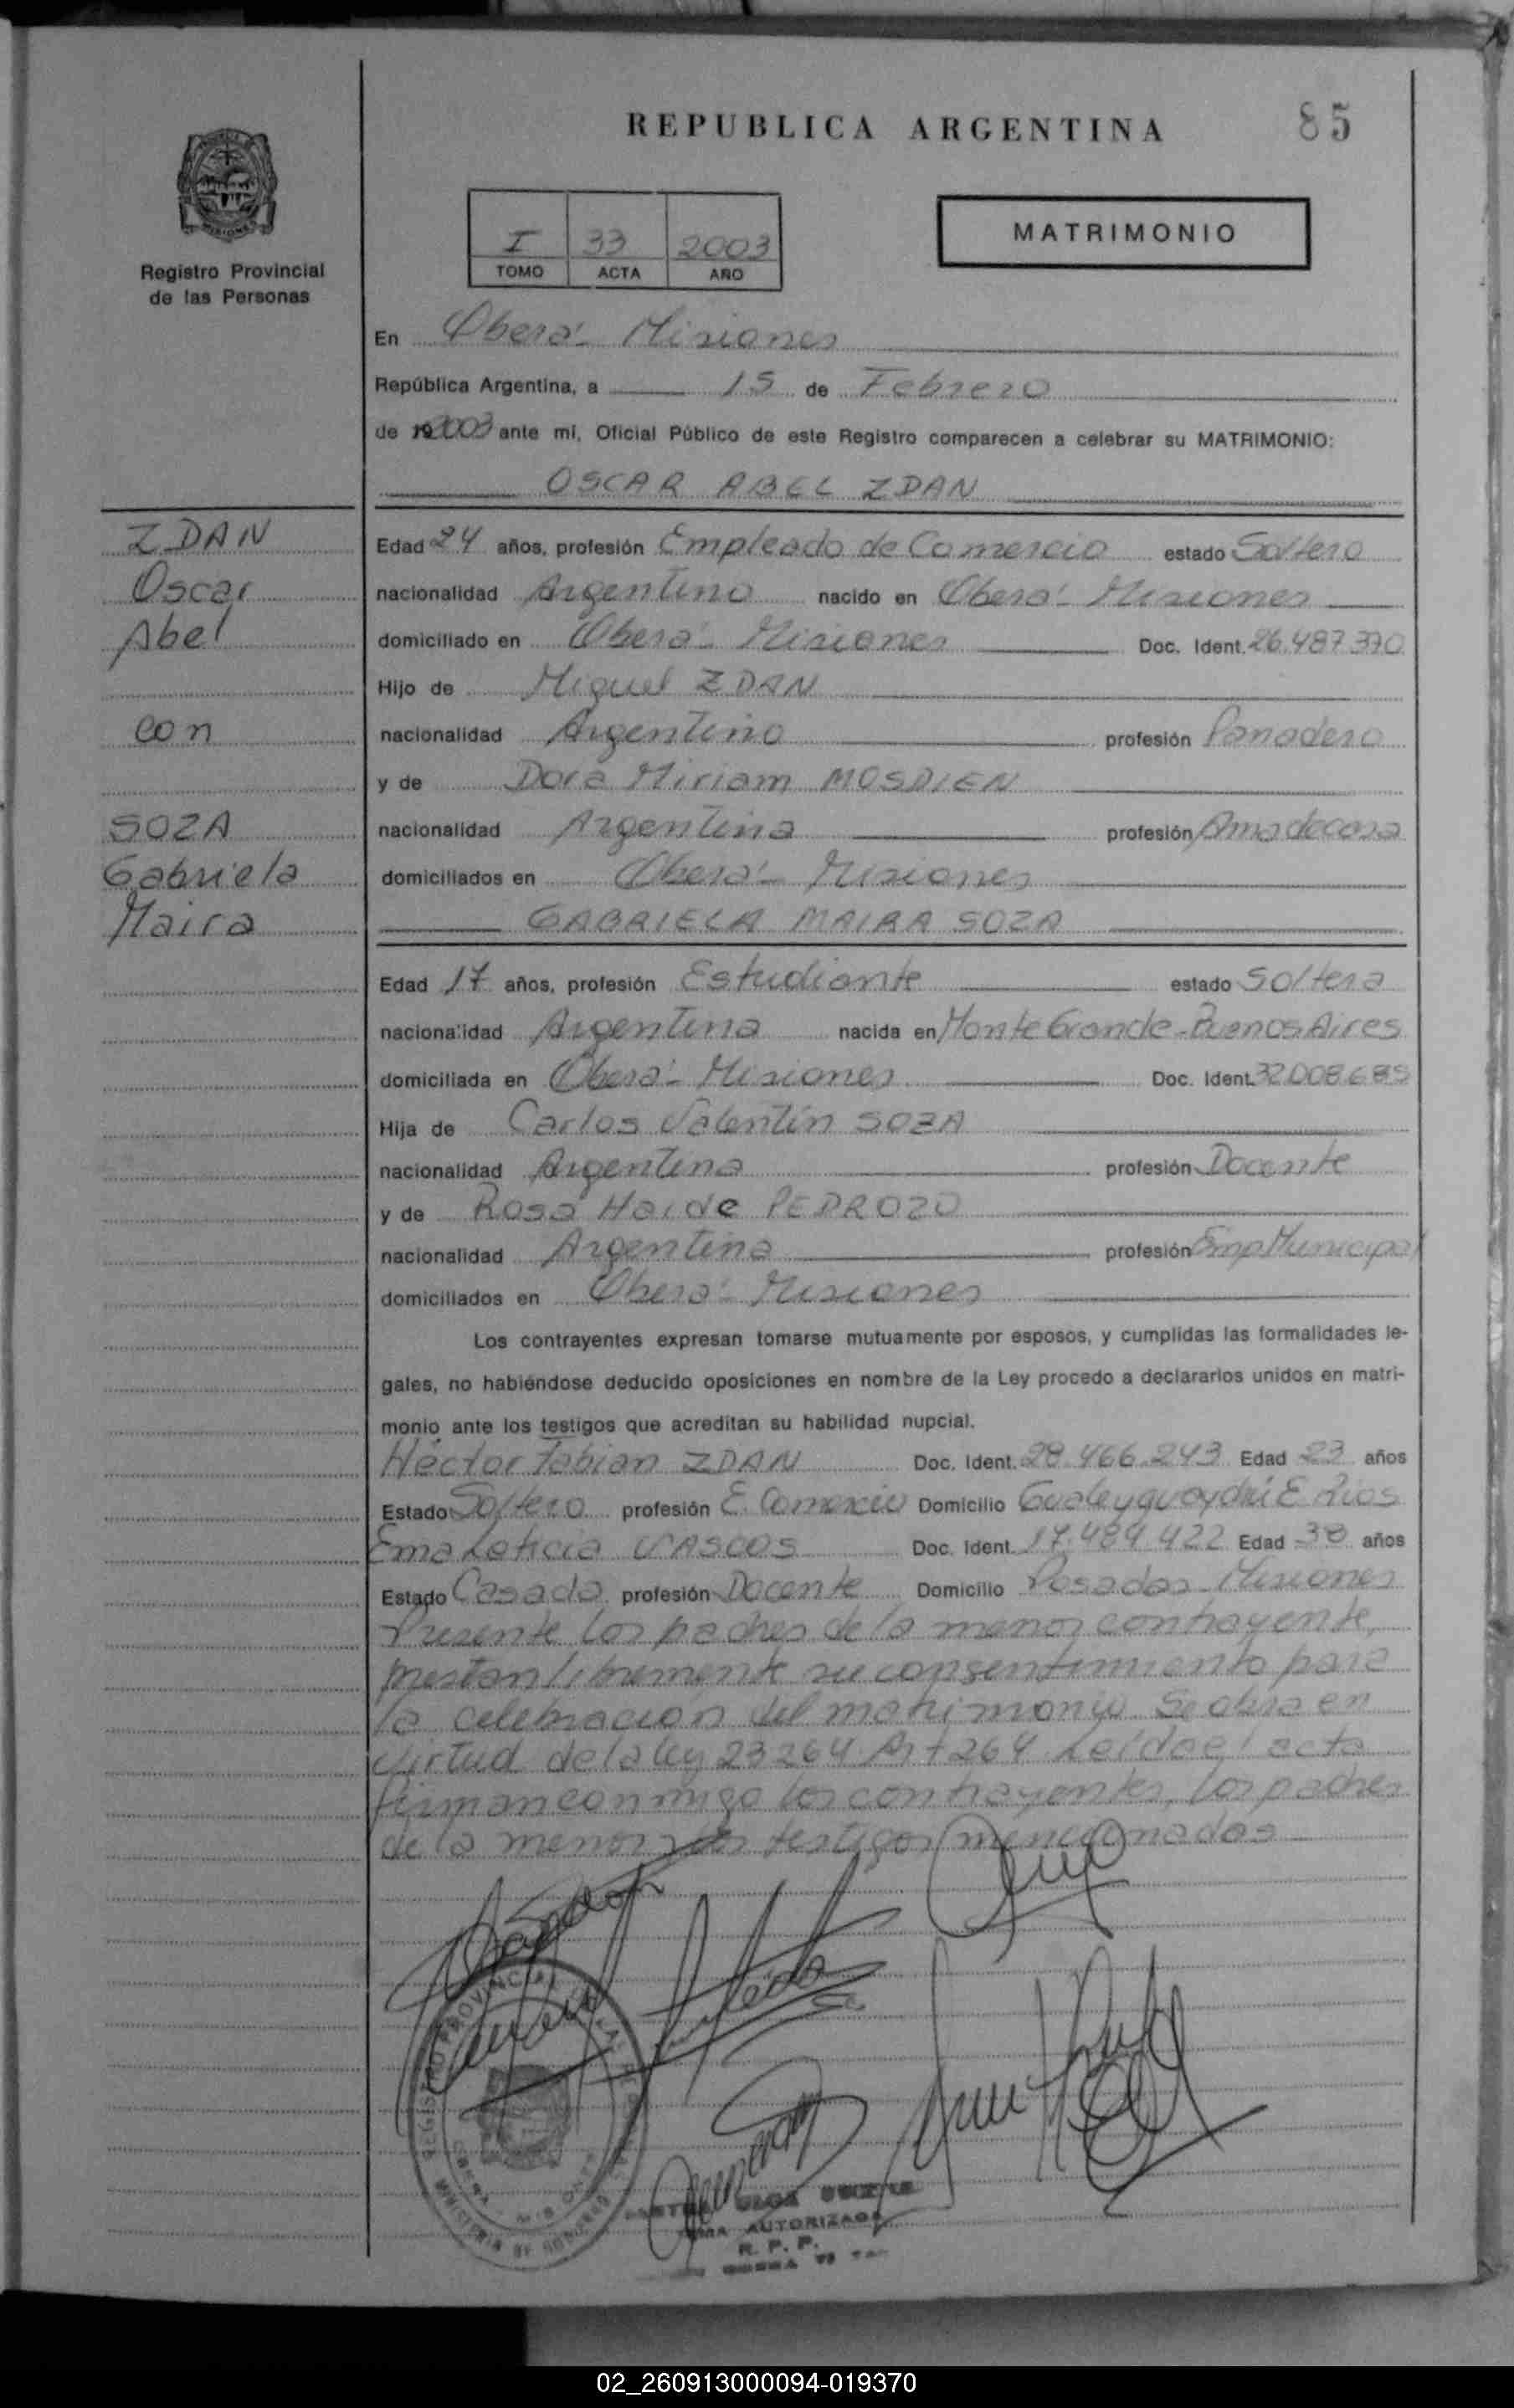 REPUBLICA ARGENTINA
85
Registro Provincial
de las Personas
I 33 2003
TOMO ACTA AÑO
MATRIMONIO
En Oberá - Misiones
República Argentina, a 15 de Febrero
de 2003 ante mí, Oficial Público de este Registro comparecen a celebrar su MATRIMONIO:
OSCAR ABEL ZDAN
ZDAN
Oscar
Abel
con
SOZA
Gabriela
Maira
Edad 24 años, profesión Empleado de Comercio estado Soltero
nacionalidad Argentino nacido en Oberá - Misiones
domiciliado en Oberá - Misiones Doc. Ident. 26.487.370
Hijo de Miguel ZDAN
nacionalidad Argentino profesión Panadero
y de Dora Miriam MOSDIEN
nacionalidad Argentina profesión Ama de casa
domiciliados en Oberá - Misiones
GABRIELA MAIRA SOZA
Edad 17 años, profesión Estudiante estado Soltera
nacionalidad Argentina nacida en Monte Grande - Buenos Aires
domiciliada en Oberá - Misiones Doc. Ident. 32.008.685
Hija de Carlos Valentín SOZA
nacionalidad Argentina profesión Docente
y de Rosa Haide PEDROZO
nacionalidad Argentina profesión Emp Municipal
domiciliados en Oberá - Misiones
Los contrayentes expresan tomarse mutuamente por esposos, y cumplidas las formalidades le-
gales, no habiéndose deducido oposiciones en nombre de la Ley procedo a declararlos unidos en matri-
monio ante los testigos que acreditan su habilidad nupcial.
Héctor Fabian ZDAN Doc. Ident. 28.466.243 Edad 23 años
Estado Soltero profesión E. Comercio Domicilio Gualeyguaychú E. Rios
Ema Leticia VASCOS Doc. Ident. 17.484.422 Edad 38 años
Estado Casada profesión Docente Domicilio Posadas - Misiones
Presente los padres de la menor contrayente,
prestan libremente su consentimiento para
la celebración del matrimonio. Se obra en
virtud de la ley 23264 Art 264. Leída el acta
firman conmigo los contrayentes, los padres
de la menor y los testigos mencionados
AUTORIZADA
R. P. P.
02_260913000094-019370